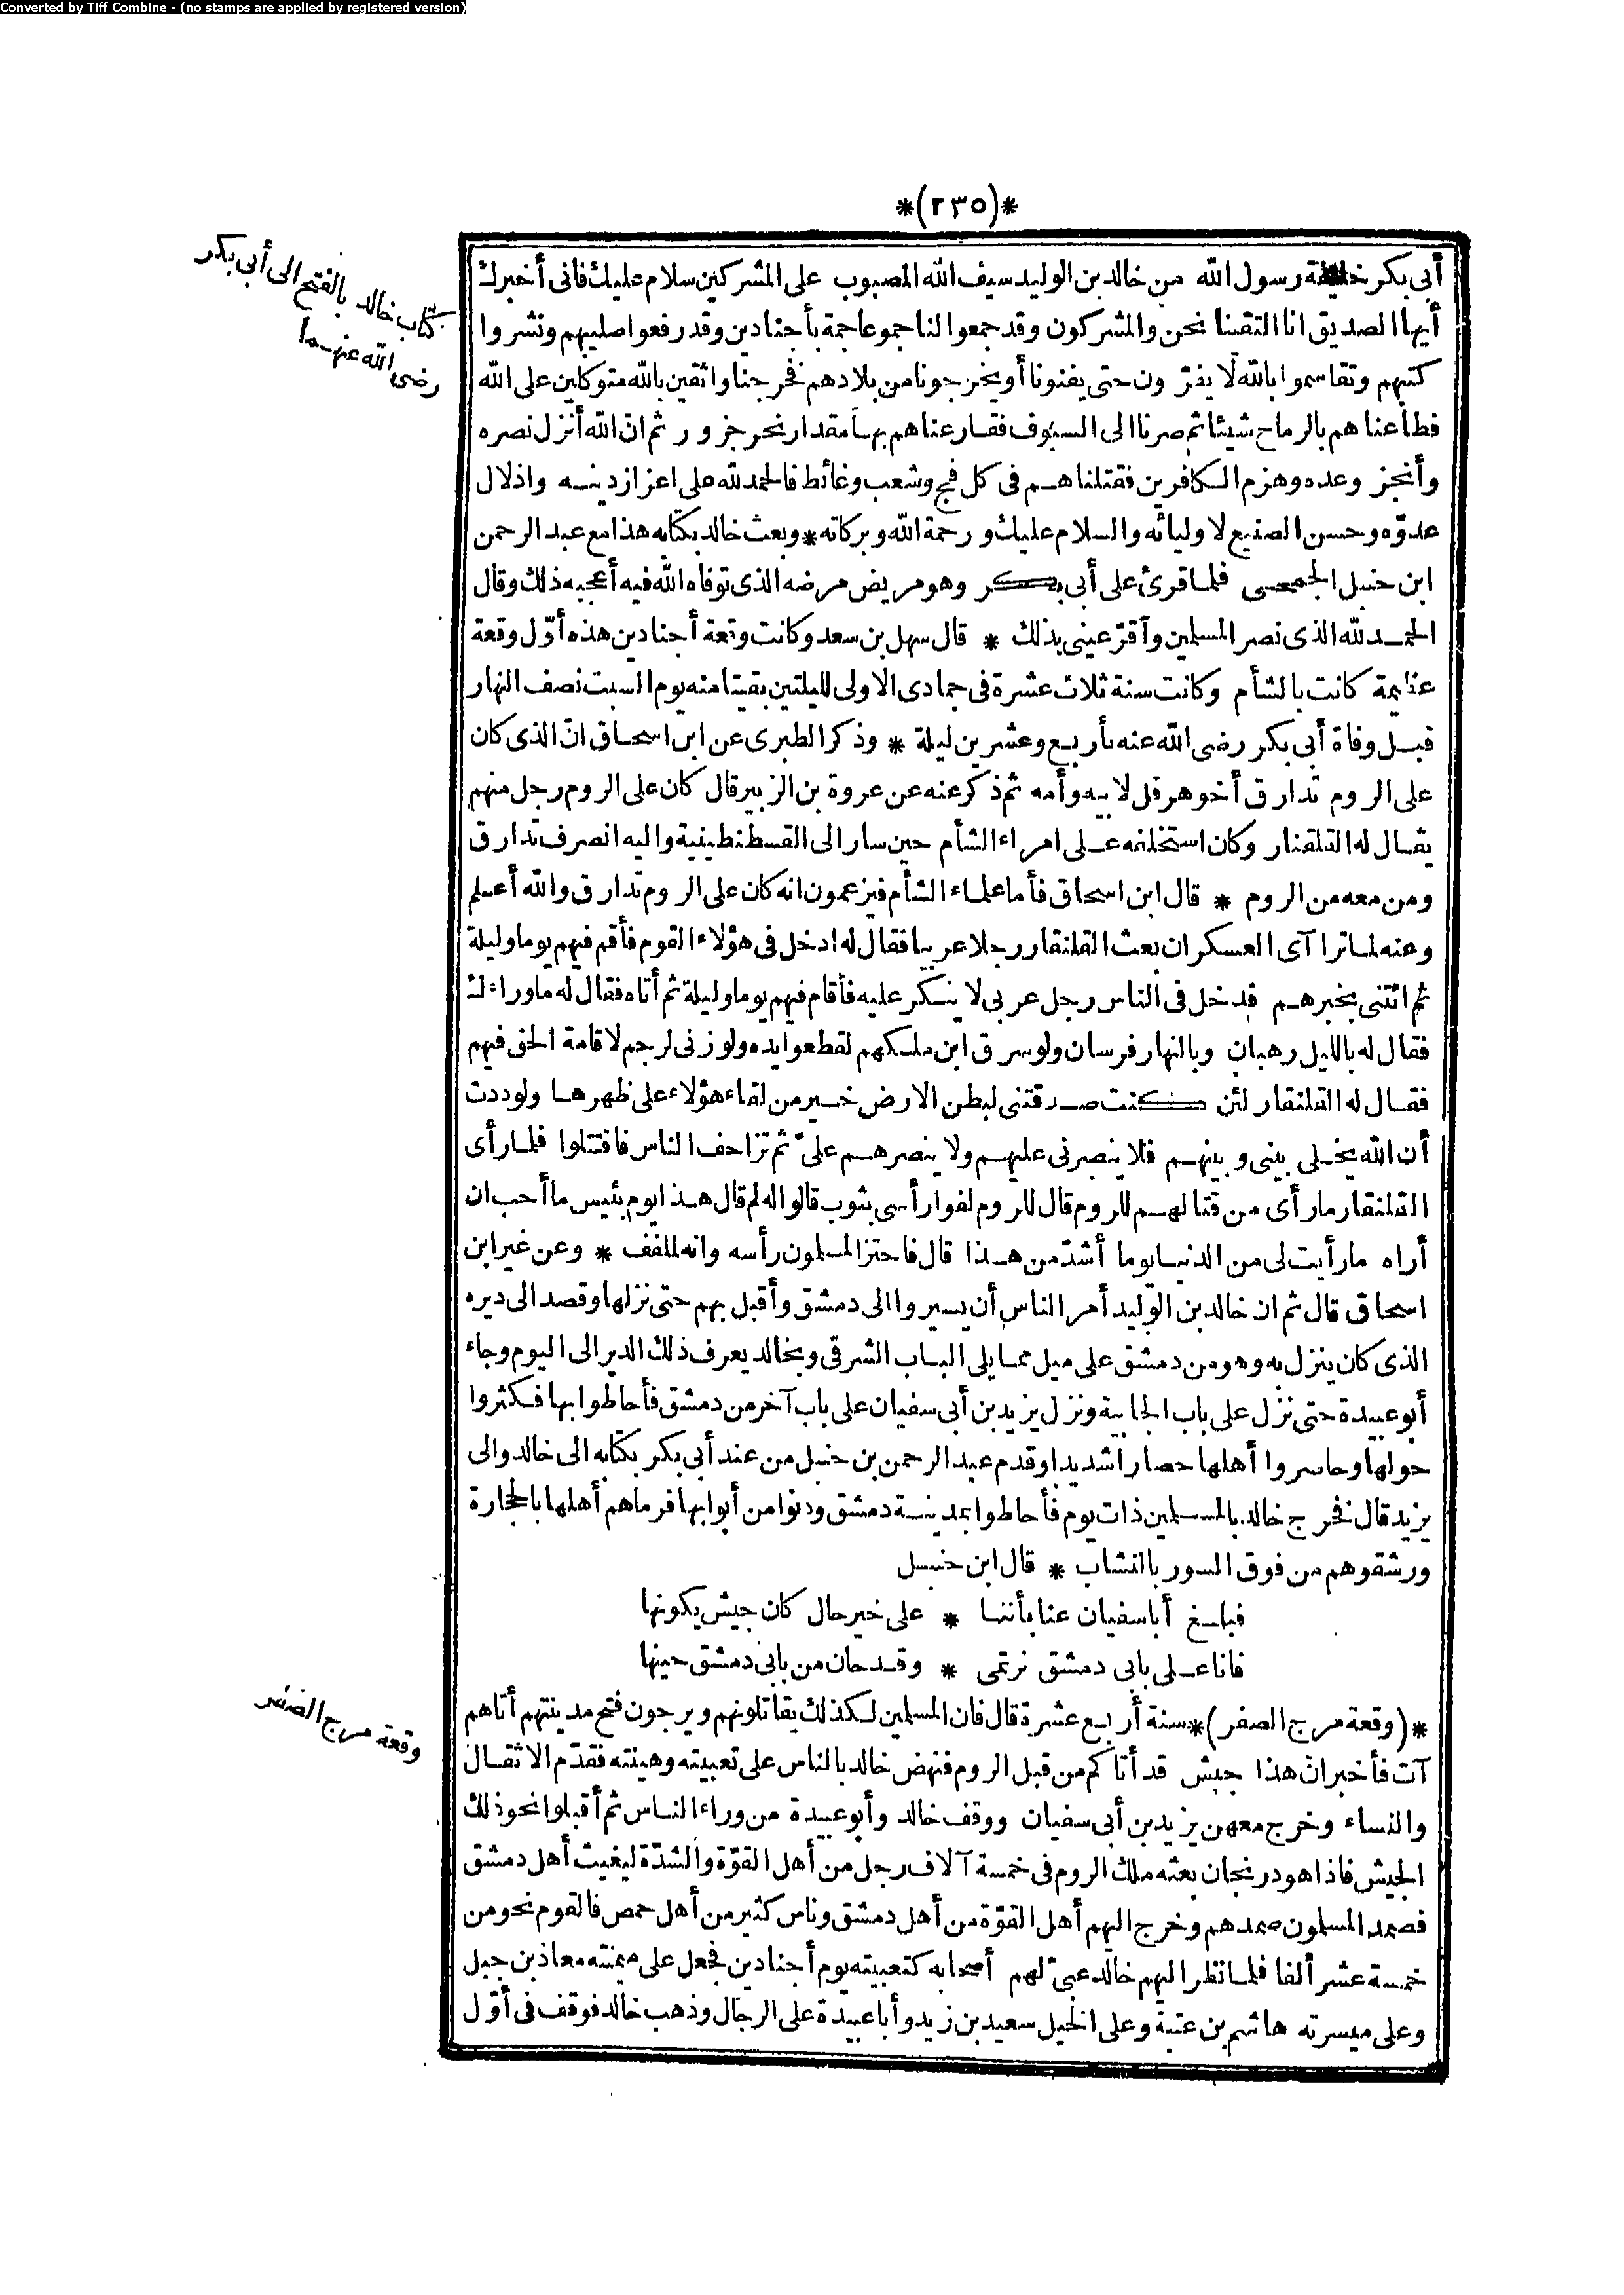 Converted by Tiff Combine - (no stamps are applied by registered version)
*(٢٣٥)*
كتاب خالد بالفتح الى أبى بكر
رضى الله عنهما
أبى بكر خليفة رسول الله من خالد بن الوليد سيف الله المصبوب على المشركين سلام عليك فانى أخبرك
أيها الصديق انا التقينا نحن والمشركون وقد جمعوا لنا جموعا جمة بأجنادين وقد رفعوا صليبهم ونشروا
كتبهم وتقاسموا بالله لا يفرّون حتى يفنونا أو يخرجونا من بلادهم فخرجنا واثقين بالله متوكلين على الله
فطاعناهم بالرماح شيئا ثم صرنا الى السيوف فقارعناهم بها مقدار نحر جزور ثم ان الله أنزل نصره
وأنجز وعده وهزم الكافرين فقتلناهم فى كل فج وشعب وغائط فالحمد لله على اعزاز دينه واذلال
عدوّه وحسن الصنيع لاوليائه والسلام عليك ورحمة الله وبركاته * وبعث خالد بكتابه هذا مع عبد الرحمن
ابن حنبل الجمحى فلما قرئ على أبى بكر وهو مريض مرضه الذى توفاه الله فيه أعجبه ذلك وقال
الحمد لله الذى نصر المسلمين وأقرّ عينى بذلك * قال سهل بن سعد وكانت وقعة أجنادين هذه أوّل وقعة
عظيمة كانت بالشأم وكانت سنة ثلاث عشرة فى جمادى الاولى لليلتين بقيتا منه يوم السبت نصف النهار
قبل وفاة أبى بكر رضى الله عنه بأربع وعشرين ليلة * وذكر الطبرى عن ابن اسحاق انّ الذى كان
على الروم تدارق أخو هرقل لابيه وأمه ثم ذكر عنه عن عروة بن الزبير قال كان على الروم رجل منهم
يقال له القلقنار وكان استخلفه على امراء الشأم حين سار الى القسطنطينية واليه انصرف تدارق
ومن معه من الروم * قال ابن اسحاق فأما علماء الشأم فيزعمون انه كان على الروم تدارق والله أعلم
وعنه لما تراآى العسكران بعث القلنقار رجلا عربيا فقال له ادخل فى هؤلاء القوم فأقم فيهم يوما وليلة
ثم ائتنى بخبرهم فدخل فى الناس رجل عربى لا ينكر عليه فأقام فيهم يوما وليلة ثم أتاه فقال له ما وراءك
فقال له بالليل رهبان وبالنهار فرسان ولو سرق ابن ملكهم لقطعوا يده ولو زنى لرجم لاقامة الحق فيهم
فقال له القلنقار لئن كنت صدقتنى لبطن الارض خير من لقاء هؤلاء على ظهرها ولوددت
أن الله يخلى بينى وبينهم فلا ينصرنى عليهم ولا ينصرهم علىّ ثم تزاحف الناس فاقتتلوا فلما رأى
القلنقار ما رأى من قتالهم للروم قال للروم لفوا رأسى بثوب قالوا له لم قال هذا يوم بئيس ما أحب ان
أراه ما رأيت لى من الدنيا يوما أشدّ من هذا قال فاحتز المسلمون رأسه وانه لملفف * وعن غير ابن
اسحاق قال ثم ان خالد بن الوليد أمر الناس أن يسيروا الى دمشق وأقبل بهم حتى نزلها وقصد الى ديره
الذى كان ينزل به وهو من دمشق على ميل مما يلى الباب الشرقى وبخالد يعرف ذلك الدير الى اليوم وجاء
أبو عبيدة حتى نزل على باب الجابية ونزل يزيد بن أبى سفيان على باب آخر من دمشق فأحاطوا بها فكثروا
حولها وحاصروا أهلها حصارا شديدا وقدم عبد الرحمن بن حنبل من عند أبى بكر بكتابه الى خالد والى
يزيد قال فخرج خالد بالمسلمين ذات يوم فأحاطوا بمدينة دمشق ودنوا من أبوابها فرماهم أهلها بالحجارة
ورشقوهم من فوق السور بالنشاب * قال ابن حنبل
فبلغ أبا سفيان عنا بأننا * على خير حال كان جيش يكونها
فانا على بابى دمشق نرتمى * وقد حان من بابى دمشق حينها
وقعة مرج الصفر
*(وقعة مرج الصفر)* سنة أربع عشرة قال فان المسلمين لكذلك يقاتلونهم ويرجون فتح مدينتهم أتاهم
آت فأخبر انّ هذا جيش قد أتاكم من قبل الروم فنهض خالد بالناس على تعبيته وهيئته فقدّم الاثقال
والنساء وخرج معهن يزيد بن أبى سفيان ووقف خالد وأبو عبيدة من وراء الناس ثم أقبلوا نحو ذلك
الجيش فاذا هو درنجان بعثه ملك الروم فى خمسة آلاف رجل من أهل القوّة والشدّة ليغيث أهل دمشق
فصمد المسلمون صمدهم وخرج اليهم أهل القوّة من أهل دمشق وناس كثير من أهل حمص فالقوم نحو من
خمسة عشر ألفا فلما نظر اليهم خالد عبىّ لهم أصحابه كتعبيته يوم أجنادين فجعل على ميمنته معاذ بن جبل
وعلى ميسرته هاشم بن عتبة وعلى الخيل سعيد بن زيد وأبا عبيدة على الرجال وذهب خالد فوقف فى أوّل